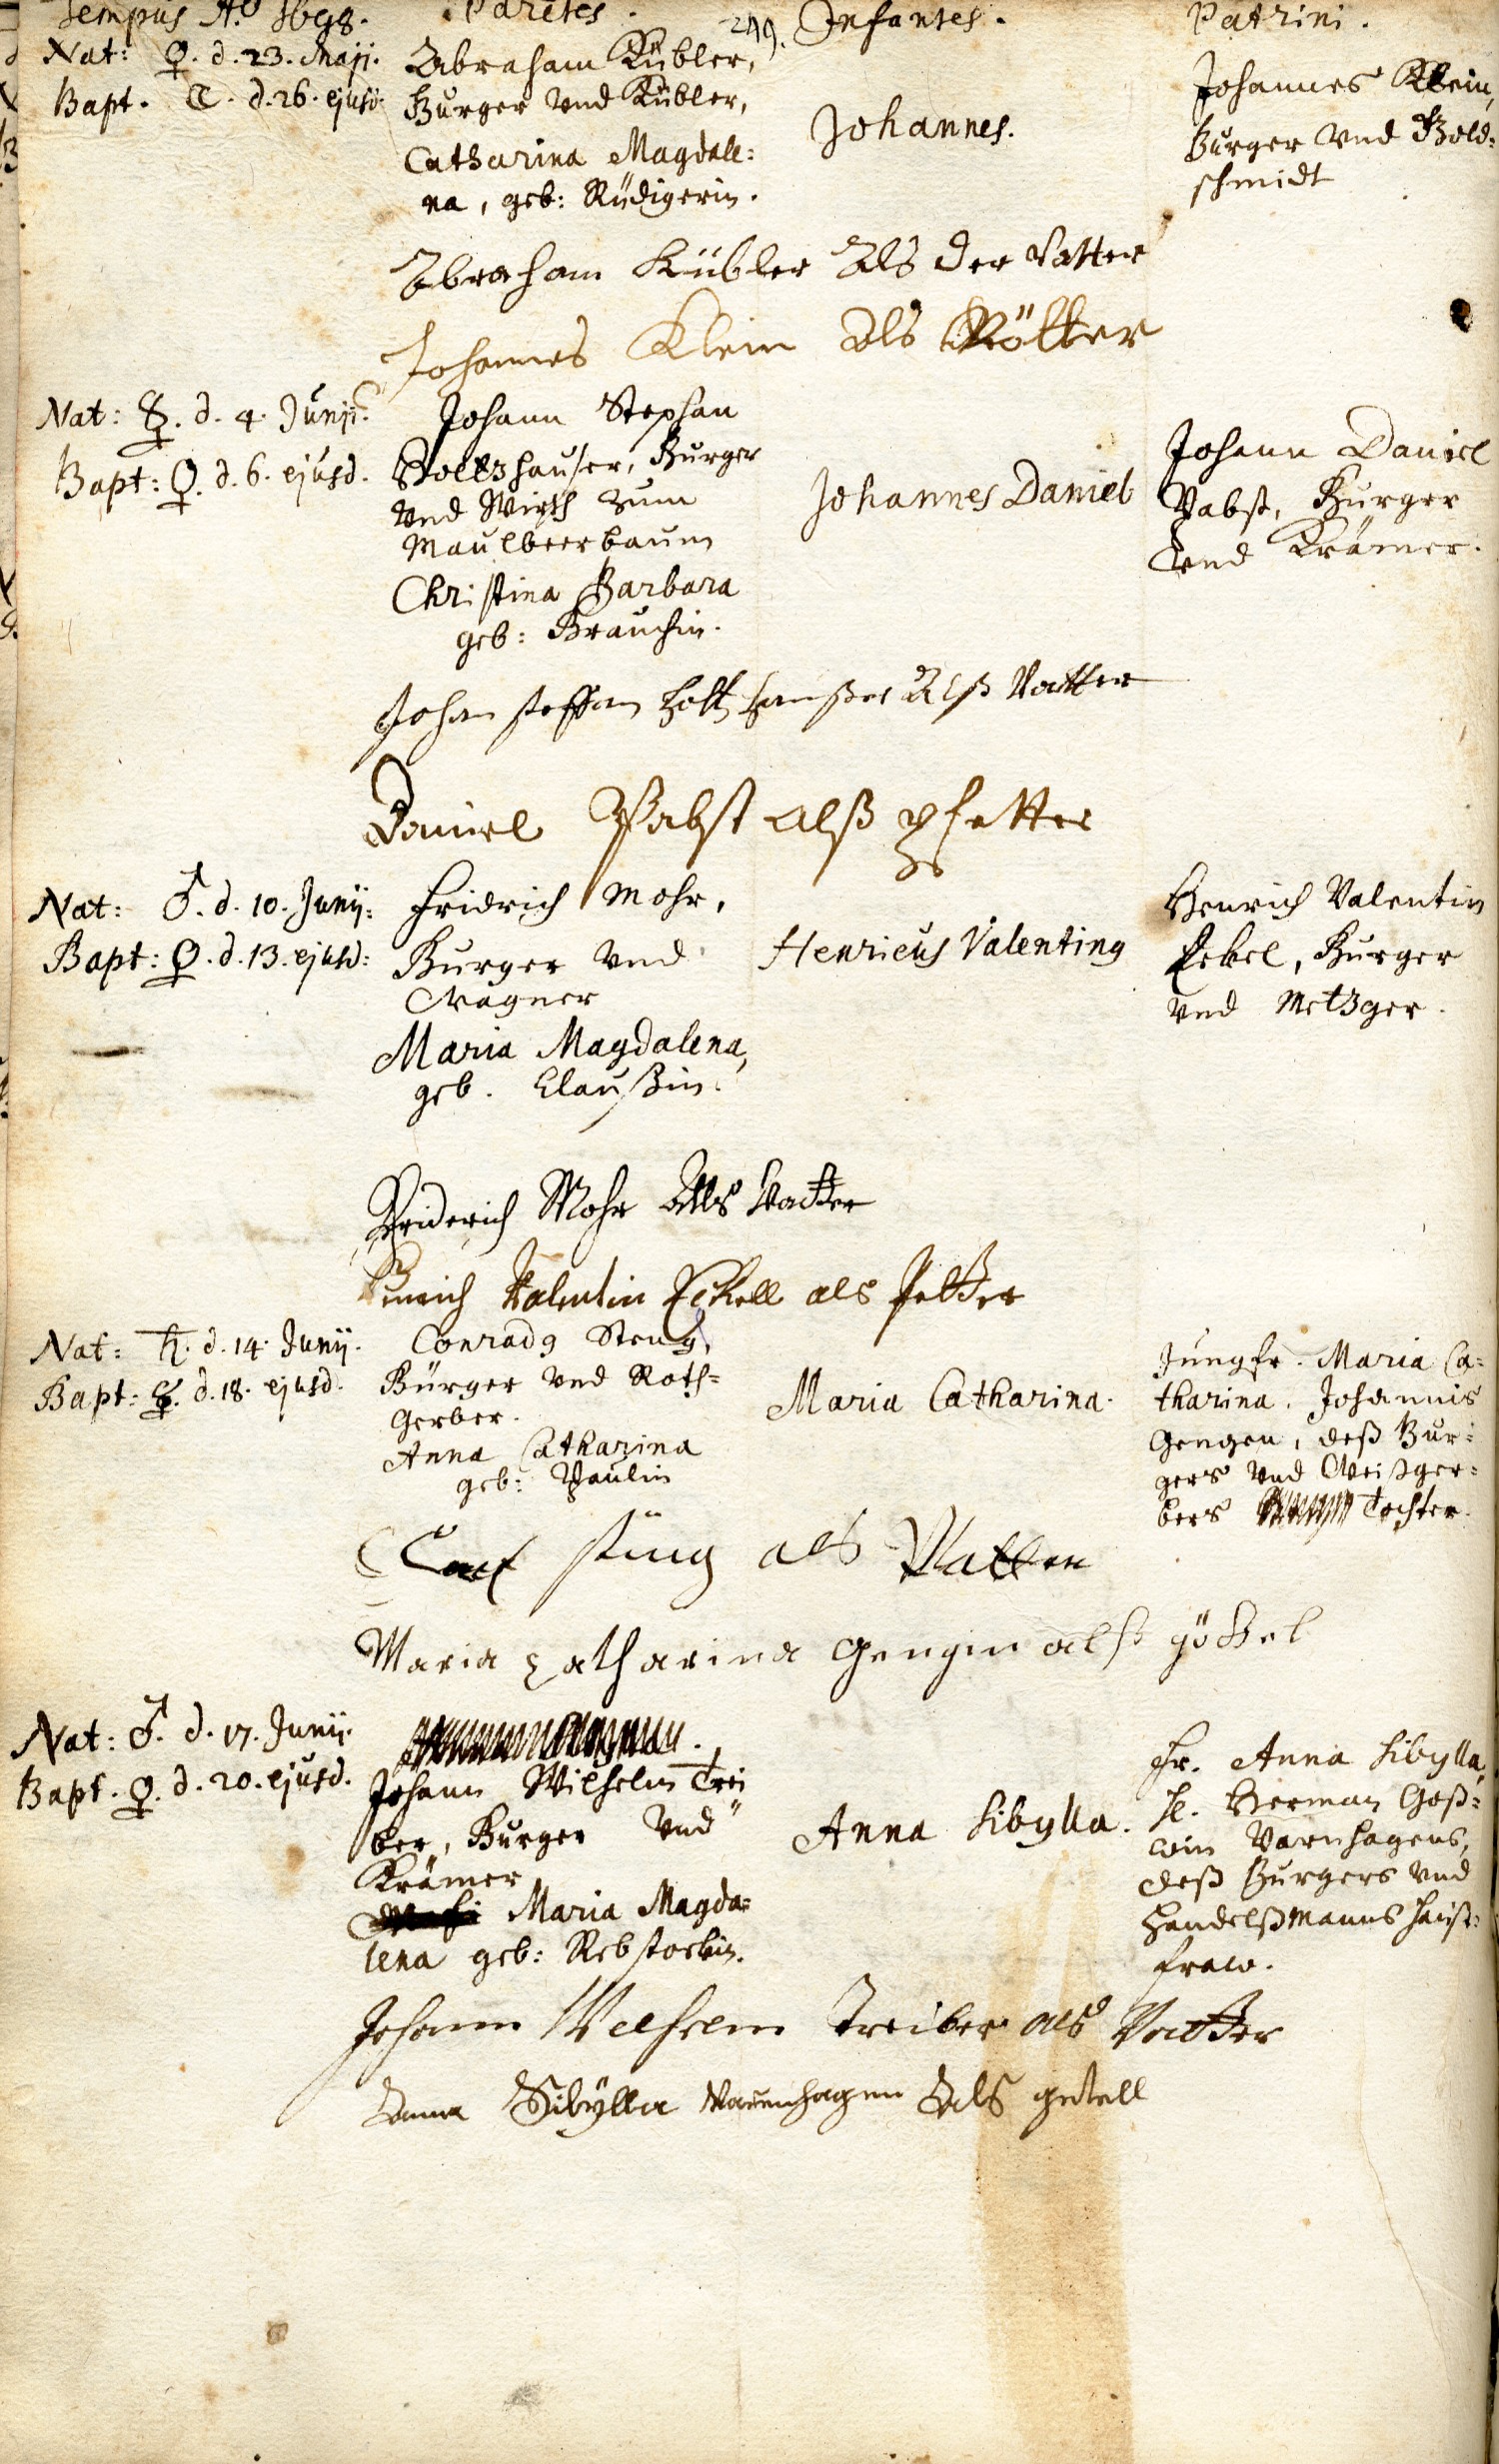 Tempus Aº 1698. Parẽtes. 249. Infantes. Patrini.
Nat: ♀. d. 23. Maji.
Bapt. ☾. d. 26. ejusd.
Abraham Kübler,
Burger vnd Kübler,
Catharina Magdale:
na, geb: Rüdigerin.
Johannes.
Johannes Klein,
Burger vnd Gold:
schmidt
Abraham Kübler Als der Vatter
Johannes Klein Als
Nat: ☿. d. 4. Junji.
Bapt: ♀. d. 6. ejusd.
Johann Stephan
Holtzhauser, Burger
vnd Wirth zum
Maulbeerbaum
Christina Barbara
geb: Brauchin.
Johannes Daniel
Johann Daniel
Pabst, Burger
vnd Krämer.
Johan steffan holtzhaußer Alß Vatter
Daniel Pabst alß pfetter
Nat: ♂. d. 10. Junij:
Bapt: ♀. d. 13. ejusd:
Fridrich Mohr,
Burger vnd
Wagner
Maria Magdalena,
geb. Claußin.
Henricus Valentinq
Henrich Valentin
Eckel, Burger
vnd Metzger.
Friderich Mohr Alls Vatter
Henrich Valentin Eckell als Petter
Nat: ♄. d. 14. Junij.
Bapt: ☿. d. 18. ejusd.
Conradq Steng,
Bürger vnd Roth-
Gerber.
Anna Catharina
geb: Paulin
Maria Catharina.
Jungfr. Maria Ca-
tharina. Johannis
Gengen, deß Bur:
gers vnd Weißger:
bers Tochter.
als Vatter
Maria Catharina Gengin alß göttel
Nat: ♂. d. 17. Junij.
Bapt. ♀. d. 20. ejusd.
Johann Wilhelm Trei
ber, Burger vnd
Krämer
Maria Magda=
lena geb: Rebstockin.
Anna Sibylla.
Fr. Anna Sibylla,
H. Herman Goß=
win Varnhagens,
deß Burgers vnd
Handelßmanns Hauß:
fraw.
Johann Wilhelm Treiber als Vatter
Anna Sibÿlla Varenhagen Als getell